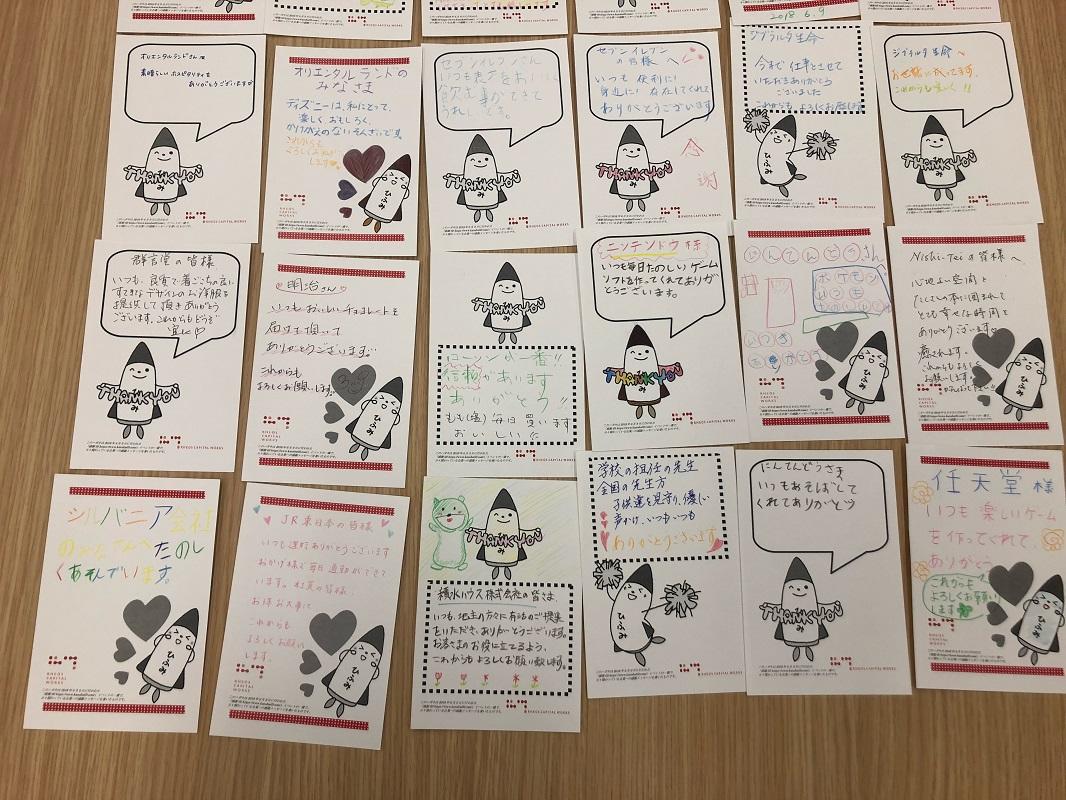 2018 6.9
オリエンタルランドさん
素晴らしいホスピタリティを
ありがとうございます
THANK YOU
ひふみ
オリエンタルランドの
みなさま
ディズニーは、私にとって、
楽しく、おもしろく、
かけがえのないそんざいです。
これからも
よろしくお
します
ひふみ
RHEOS
CAPITAL
WORKS
セブンイレブンさん
いつも
飲む事ができて
うれしいです。
THANK YOU
ひふみ
セブンイレブン
の皆様へ
いつも便利に!
身近に! 存在してくれて
ありがとうございます
THANK YOU
ひふみ
感
謝
RHEOS CAPITAL WORKS
ジブラルタ生命
今まで仕事とさせて
いただきありがとう
ございました
これからもよろしくお願い
ひふみ
ジブラルタ生命へ
お世話になってます。
これからも !!
THANK YOU
ひふみ
RHEOS CAPITAL WORKS
群言堂の皆様
いつも、良質で着ごこちの良い
すてきなデザインのお洋服を
提供して頂きありがとう
ございます。これからもどうぞ
宜しく♡
THANK YOU
ひふみ
明治さん
いつもおいしいチョコレートを
届けて頂いて
ありがとうございます。
これからも
よろしくお願いします。
ひふみ
RHEOS
CAPITAL
WORKS
THANK YOU
ひふみ
ローソンが一番!!
信頼があります
ありがとう!!
もも(塩)毎日買います
おいしい!!
ニンテンドウ様
いつも毎日たのしいゲーム
ソフトを作ってくれてありが
とうございます。
THANK YOU
ひふみ
RHEOS CAPITAL WORKS
にんてんどうさん
ポケモン
いつも
いつも
ありがとう
ひふみ
RHEOS
CAPITAL
WORKS
Nishi-Teiの皆様へ
心地よい空間と
たくさんの本に囲まれて
とても幸せな時間を
ありがとうございます。
癒されます。
これからもよろしく
お願いします
ひふみ
RHEOS
CAPITAL
WORKS
シルバニア会社
のみなさんへたのし
くあそんでいます。
ひふみ
RHEOS
CAPITAL
WORKS
JR東日本の皆様
いつも運行ありがとうございます
おかげ様で毎日通勤ができて
います。社員の皆様、
お体お大事に
これからも
よろしくお願い
します
ひふみ
RHEOS
CAPITAL
WORKS
THANK YOU
ひふみ
積水ハウス株式会社の皆さま、
いつも、地主の方々に有益のご提案
をいただき、ありがとうございます。
お客さまのお役に立てるよう、
これからもよろしくお願い致します。
RHEOS CAPITAL WORKS
学校の担任の先生
全国の先生方
子供達を見守り、優しい
声かけ、いつもいつも
ありがとうございます
ひふみ
にんてんどうさま
いつもあそばして
くれてありがとう
THANK YOU
ひふみ
RHEOS CAPITAL WORKS
任天堂様
いつも楽しいゲーム
を作ってくれて、
ありがとう
これからも
よろしくお願い
します
ひふみ
RHEOS
CAPITAL
WORKS